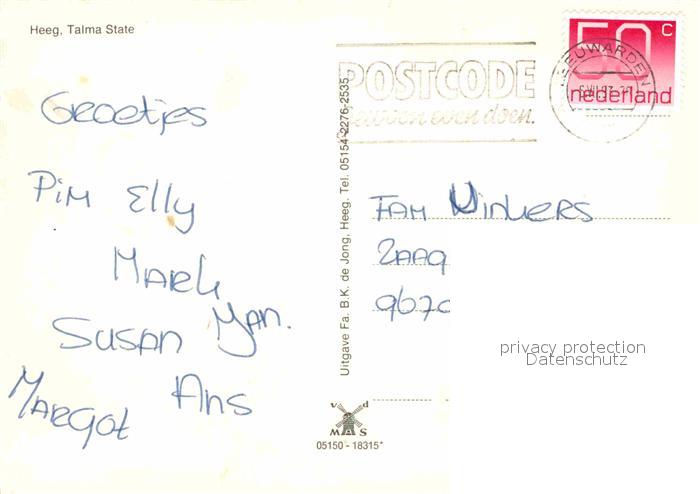 Heeg, Talma State
Groetjes
Pim Elly
Mark
Jan.
Susan
Ans
Margot
Uitgave Fa. B.K. de Jong, Heeg. Tel. 05154-2276-2535
POSTCODE
gewoon even doen.
LEEUWARDEN
50 c
nederland
Fam Winkers
Zaag
9670
privacy protection
Datenschutz
v d
MAS
05150 - 18315*